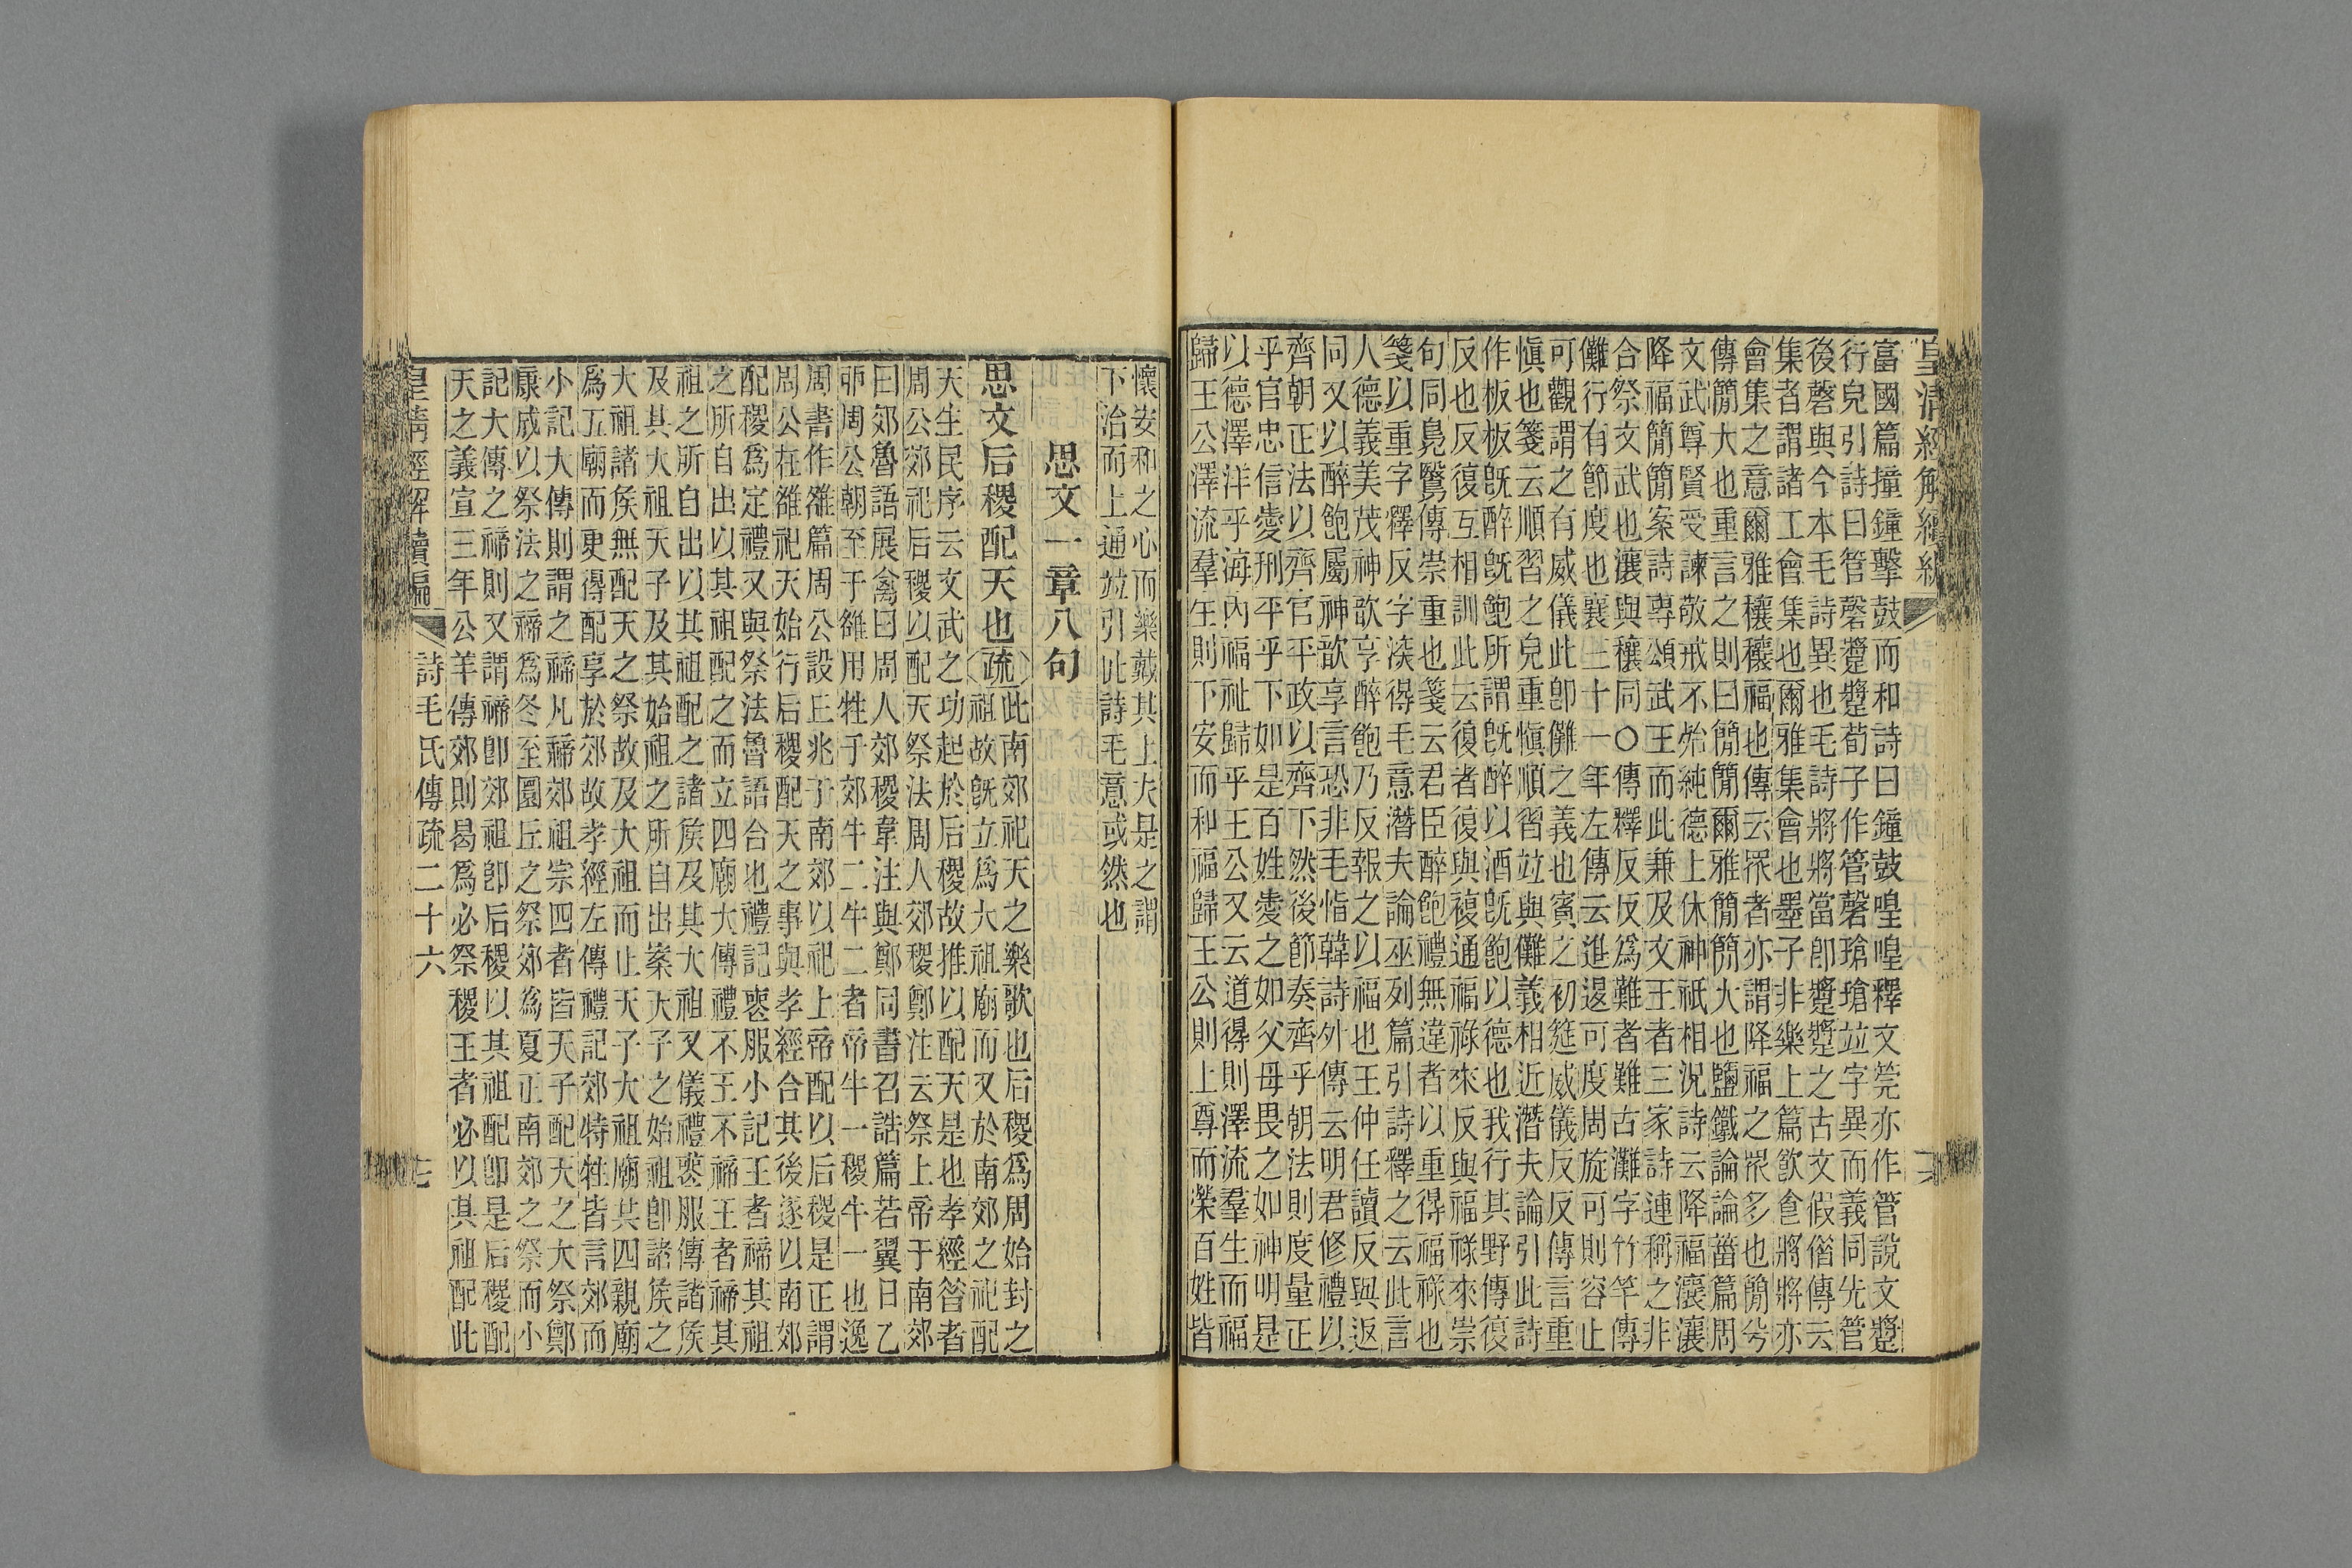 皇清經解續編
富國篇撞鐘擊鼓而和詩曰鐘鼓喤喤釋文筦亦作管說文蹡
行皃引詩曰管磬蹡蹡荀子作管磬瑲瑲竝字異而義同先管
後磬與今本毛詩異也毛詩將將當卽蹡蹡之古文假借傳云
集者謂諸工會集也爾雅集會也墨子非樂上篇飲食將將亦
會集之意爾雅穰穰福也傳云眾者亦謂降福之眾多也簡兮
傳簡大也重言之則曰簡簡爾雅簡簡大也鹽鐵論論菑篇周
文武尊賢受諫敬戒不殆純德上休神祇相況詩云降福瀼瀼
降福簡簡案詩專頌武王而此兼及文王者三家詩連稱之非
合祭文武也瀼與穰同○傳釋反反爲難者難古灘字竹竿傳
儺行有節度也襄三十一年左傳云進退可度周旋可則容止
可觀謂之有威儀此卽儺之義也賓之初筵威儀反反傳言重
愼也箋云順習之皃重愼順習竝與儺義相近潛夫論引此詩
作板板旣醉旣飽所謂旣醉以酒旣飽以德也我行其野傳復
反也反復互相訓此云復者復與複通福祿來反與福祿來崇
句同鳧鷖傳崇重也箋云君臣醉飽禮無違者以重得福祿也
箋以重字釋反字深得毛意潛夫論巫列篇引詩釋之云此言
人德義美茂神歆享醉飽乃反報之以福也王仲任讀反與返
同又以醉飽屬神歆享言恐非毛恉韓詩外傳云明君修禮以
齊朝正法以齊官平政以齊下然後節奏齊乎朝法則度量正
乎官忠信愛刑平乎下如是百姓愛之如父母畏之如神明是
以德澤洋乎海內福祉歸乎王公又云道得則澤流羣生而福
歸王公澤流羣生則下安而和福歸王公則上尊而榮百姓皆
懷安和之心而樂戴其上夫是之謂
下治而上通竝引此詩毛意或然也
思文一章八句
思文后稷配天也〔疏〕
此南郊祀天之樂歌也后稷爲周始封之
祖故旣立爲大祖廟而又於南郊之祀配
天生民序云文武之功起於后稷故推以配天是也孝經昔者
周公郊祀后稷以配天祭法周人郊稷鄭注云祭上帝于南郊
曰郊魯語展禽曰周人郊稷韋注與鄭同書召誥篇若翼日乙
卯周公朝至于雒用牲于郊牛二牛二者帝牛一稷牛一也逸
周書作雒篇周公設丘兆于南郊以祀上帝配以后稷是正謂
周公在雒祀天始行后稷配天之事與孝經合其後遂以南郊
配稷爲定禮又與祭法魯語合也禮記喪服小記王者禘其祖
之所自出以其祖配之而立四廟大傳禮不王不禘王者禘其
祖之所自出以其祖配之諸矦及其大祖又儀禮喪服傳諸矦
及其大祖天子及其始祖之所自出案天子之始祖卽諸矦之
大祖諸矦無配天之祭故及大祖而止天子大祖廟共四親廟
爲五廟而更得配享於郊故孝經左傳禮記郊特牲皆言郊而
小記大傳則謂之禘凡禘郊祖宗四者皆天子配天之大祭鄭
康成以祭法之禘爲冬至圜丘之祭郊爲夏正南郊之祭而小
記大傳之禘則又謂禘卽郊祖卽后稷以其祖配卽是后稷配
天之義宣三年公羊傳郊則曷爲必祭稷王者必以其祖配此
皇清經解續編 詩毛氏傳疏二十六